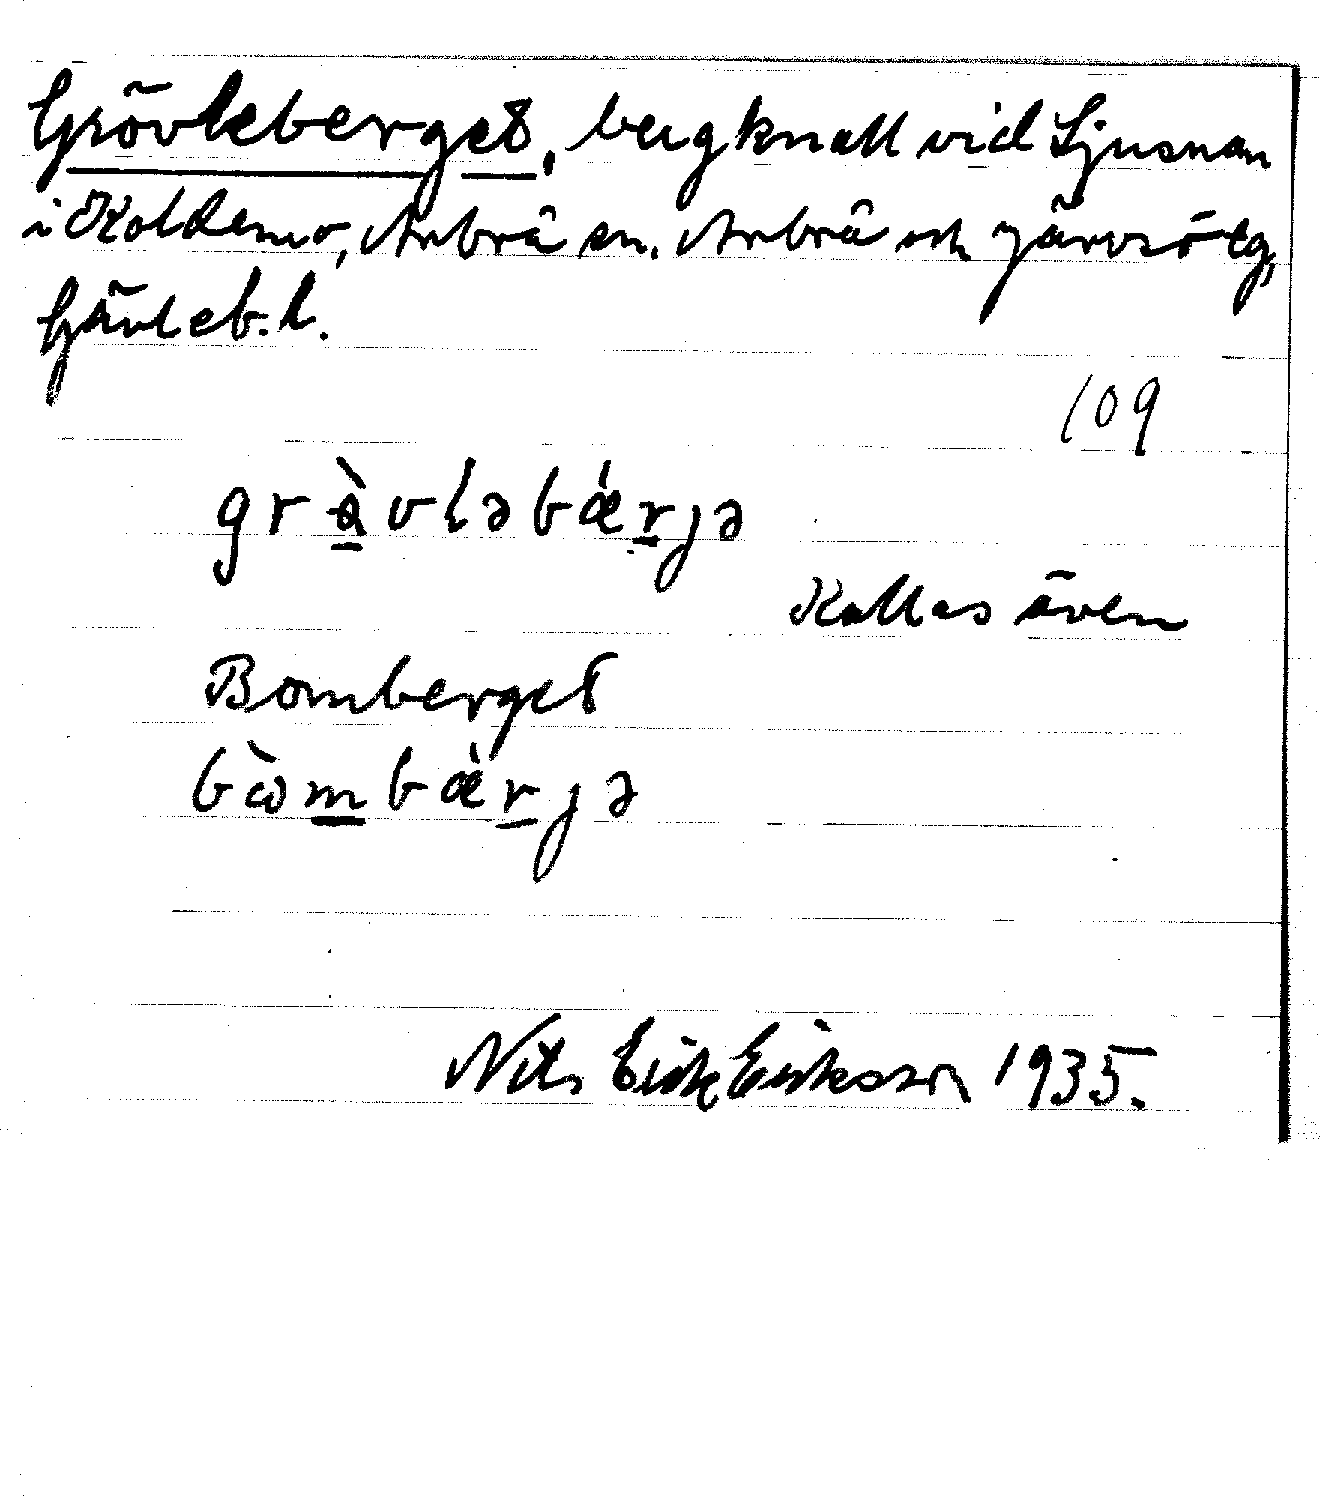 Grövleberget, bergknall vid Ljusnan
i Koldemo, Arbrå sn. Arbrå och Järvsö tg,
Gävleb. l.
109
grɑ̀vləbǽrjə
Kallas även
Bomberget
bὼmbæ̀rjə
Nils Erik Eriksson 1935.